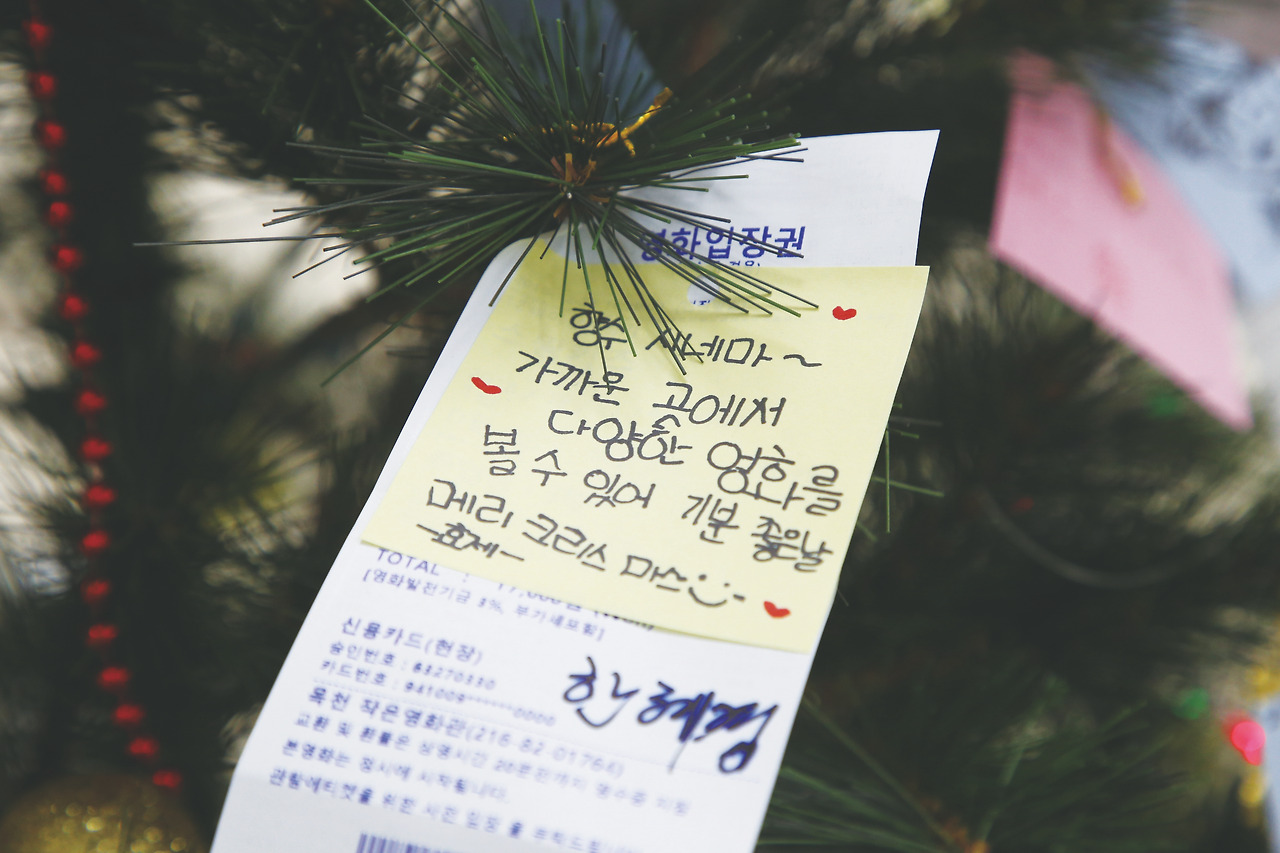 영화입장권
향수 시네마~
가까운 곳에서
다양한 영화를
볼 수 있어 기분 좋은날
메리 크리스마스
-효제-
TOTAL : 17,000원 (Won)
[영화발전기금 3%, 부가세포함]
신용카드(현장)
승인번호 : 83270880
카드번호 : 941009******0000
한혜정
옥천 작은영화관(216-82-01764)
교환 및 환불은 상영시간 20분전까지 영수증 지참
본영화는 정시에 시작됩니다.
관람에티켓을 위한 사전 입장 을 부탁드립니다